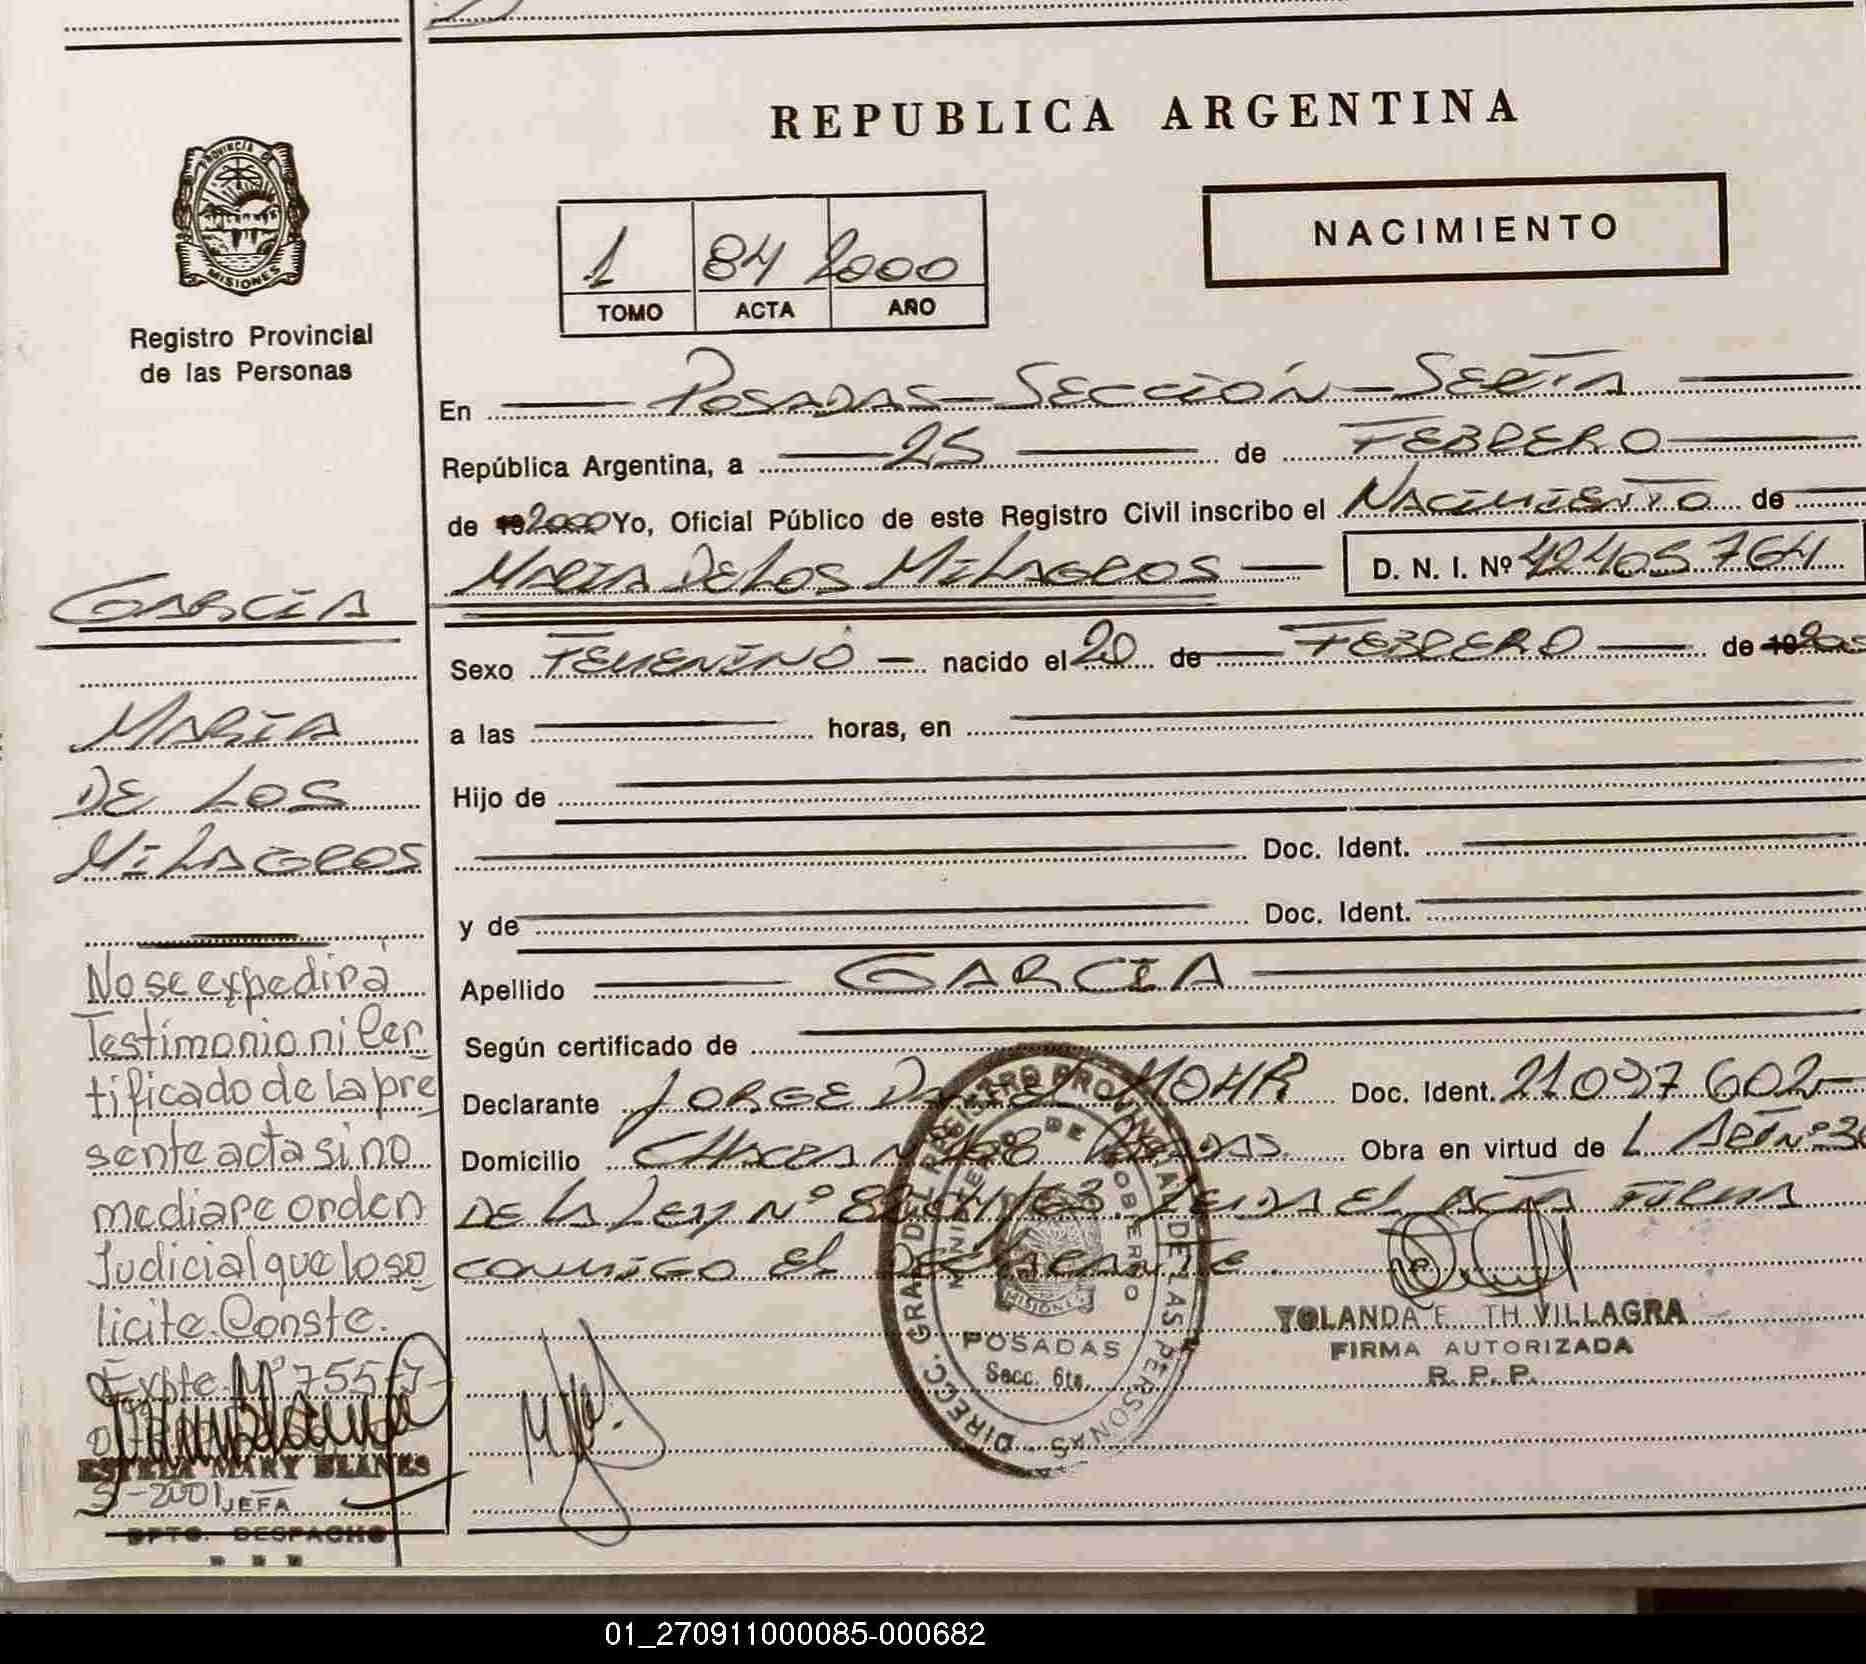 REPUBLICA ARGENTINA
PROVINCIA DE
MISIONES
Registro Provincial
de las Personas
NACIMIENTO
1 84 2000
TOMO ACTA AÑO
En POSADAS - SECCIÓN - SEXTA
República Argentina, a 25 de FEBRERO
de 19 2000 Yo, Oficial Público de este Registro Civil inscribo el NACIMIENTO de
MARIA DE LOS MILAGROS D. N. I. Nº 42405764
Sexo FEMENINO - nacido el 20 de FEBRERO de 19
a las horas, en
Hijo de
Doc. Ident.
y de Doc. Ident.
Apellido GARCIA
Según certificado de
Declarante JORGE DANIEL MOHR Doc. Ident. 21097602
Domicilio POSADAS. Obra en virtud de L ART Nº 3
DE LA LEY Nº LEIDA EL ACTA FIRMA
CONMIGO EL DECLARANTE.
GARCÍA
MARIA
DE LOS
MILAGROS
No se expedirá
Testimonio ni Cer
tificado de la pre
sente acta si no
mediare orden
Judicial que lo so
licite. Conste.
Expte. Nº 755
ESTELA MARY BLANES
5-2001 JEFA
DPTO. DESPACHO
DIRECC. GRAL. DEL REGISTRO PROVINCIAL DE LAS PERSONAS
MINISTERIO DE GOBIERNO
MISIONES
POSADAS
Secc. 6ta.
YOLANDA E. TH VILLAGRA
FIRMA AUTORIZADA
R. P. P.
01_270911000085-000682